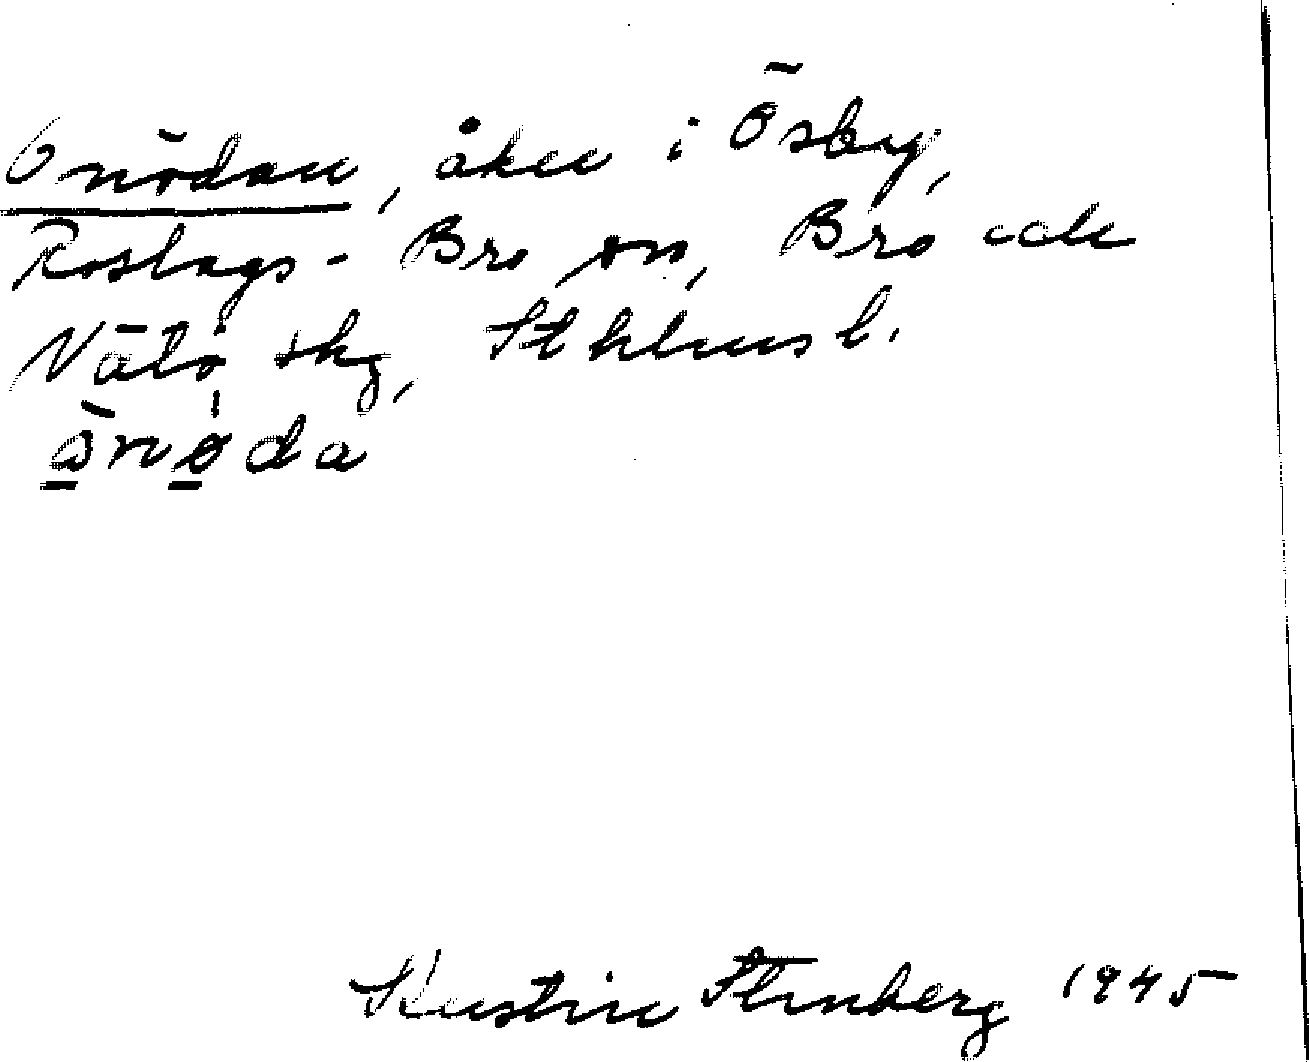 Onödan, åker i Ösby,
Roslags-Bro sn, Bro och
Vätö skg, Sthlms l.
ònø̀da
Kerstin Stenberg 1945